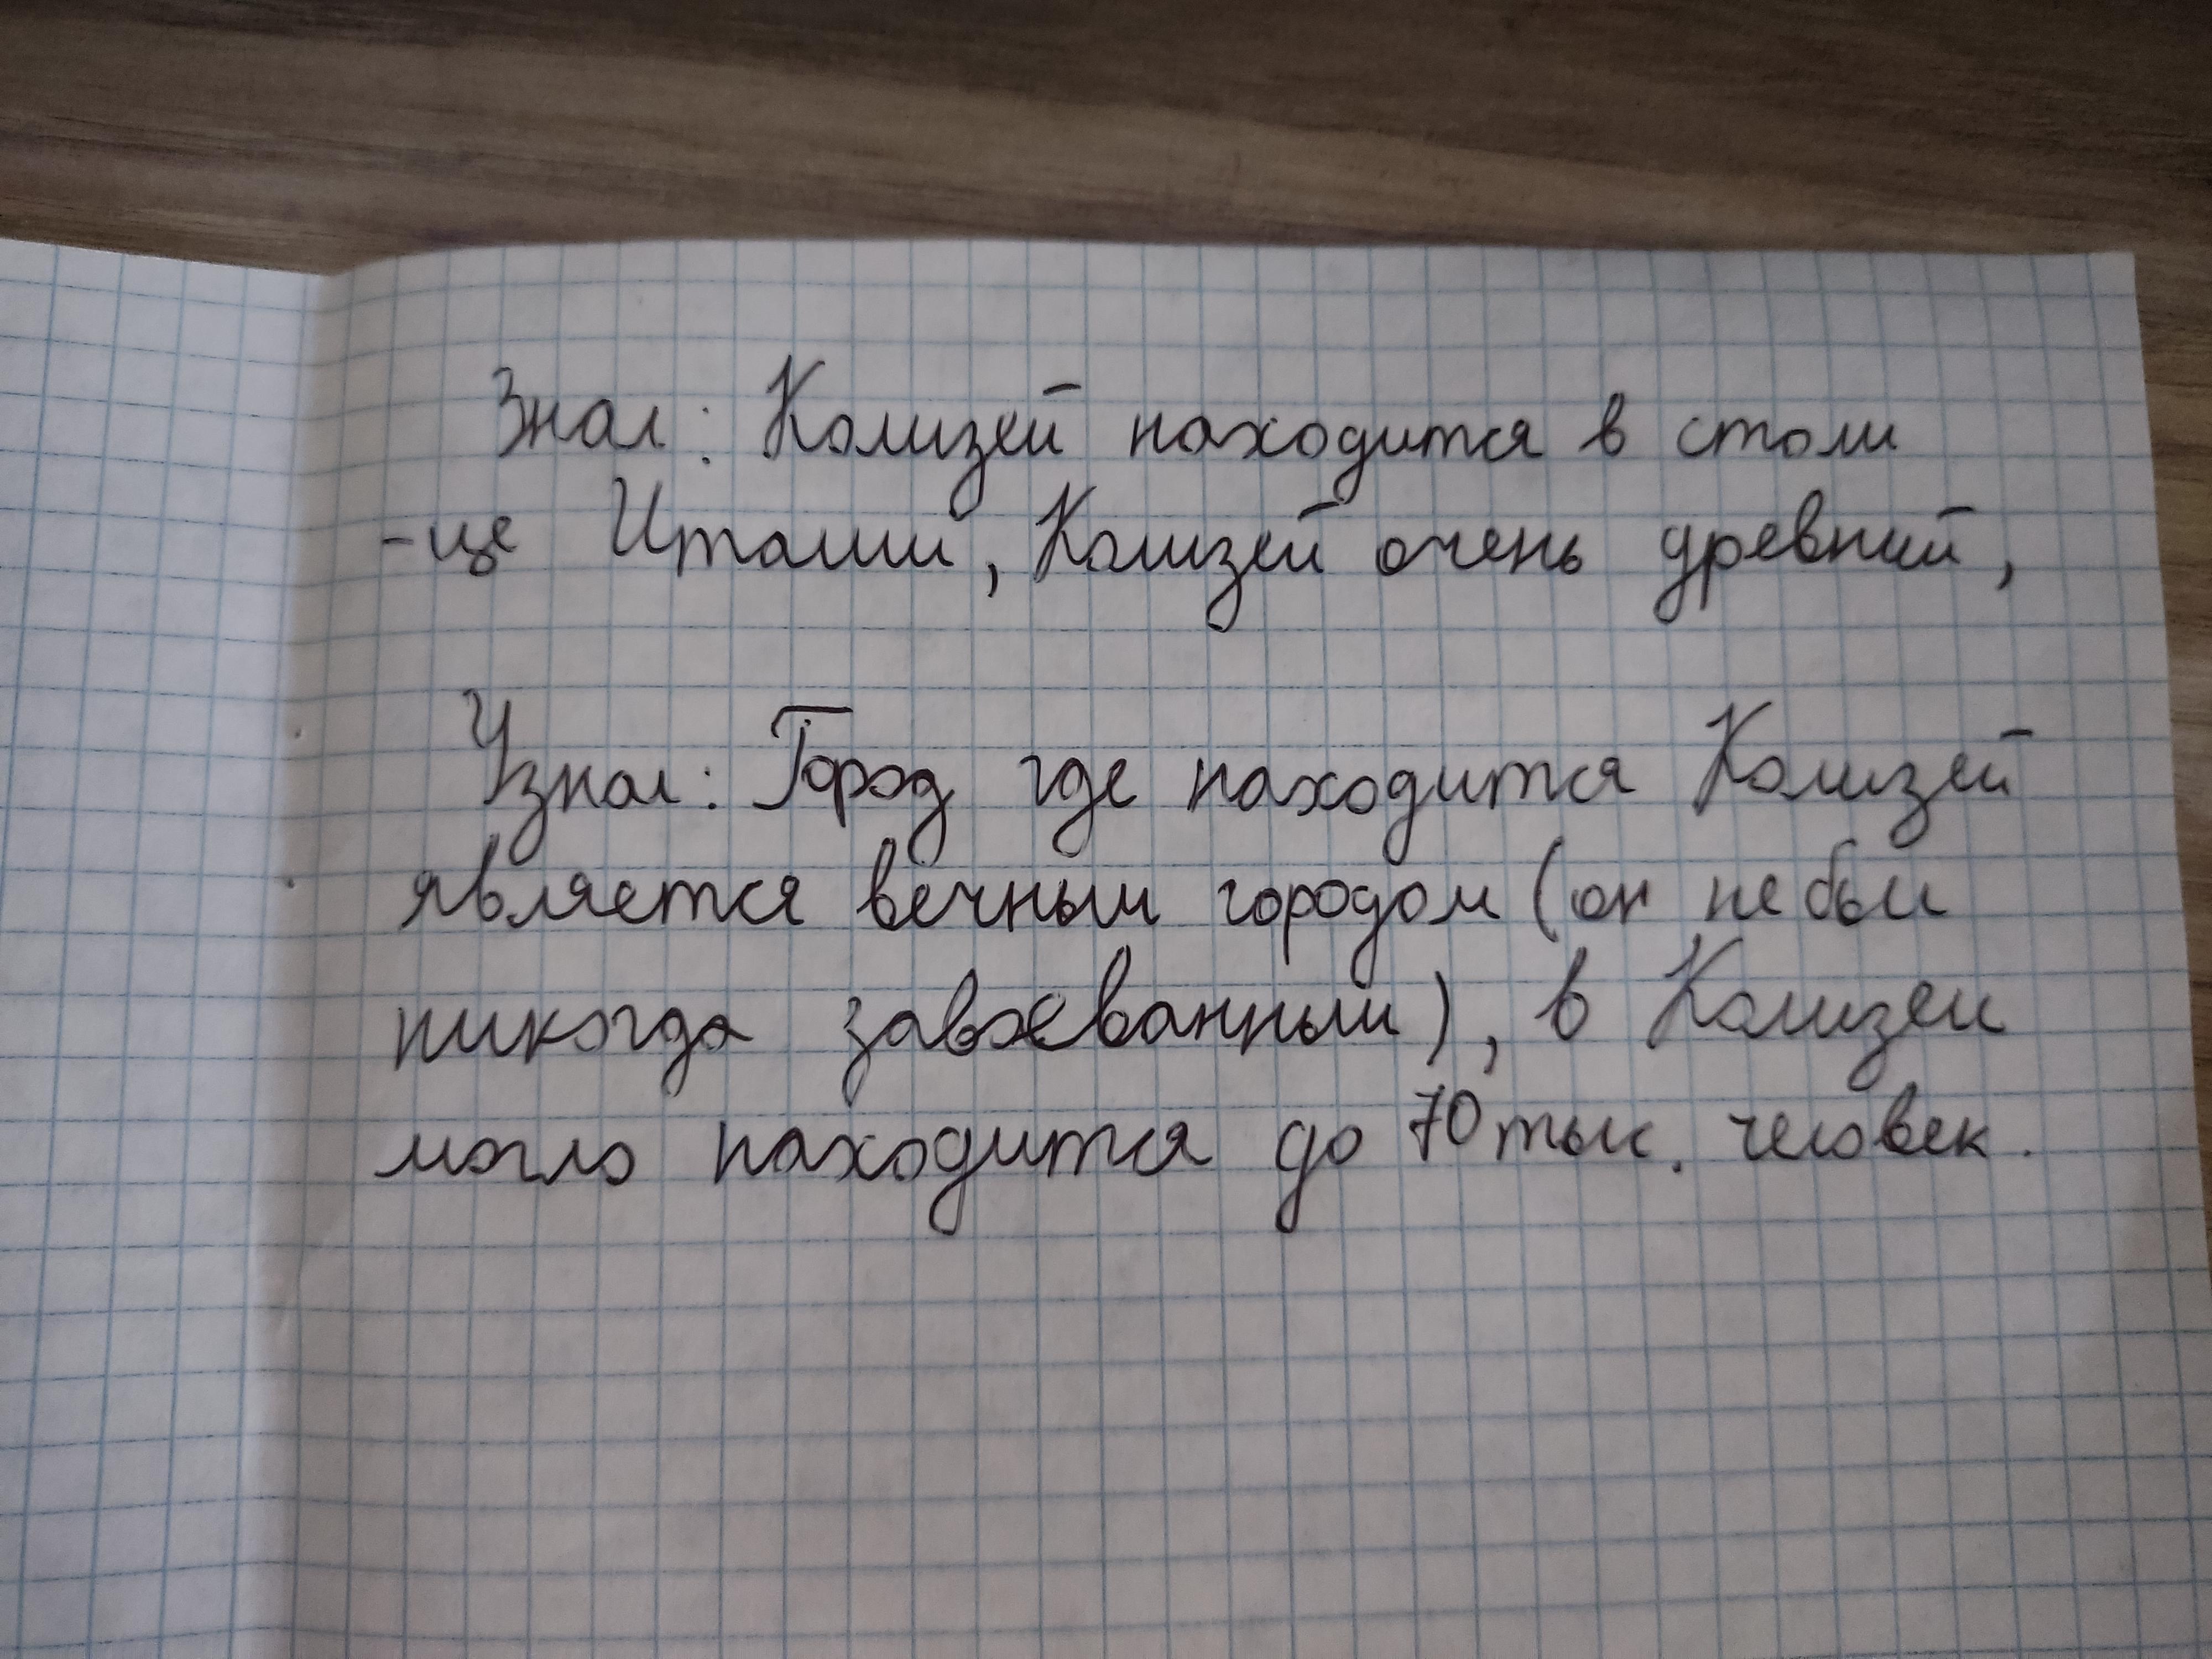 Знал: Колизей находится в столи
-це Италии, Колизей очень древний,
Узнал: Город где находится Колизей
является вечным городом (он не был
никогда завоеванным), в Колизеи
могло находится до 70 тыс. человек.